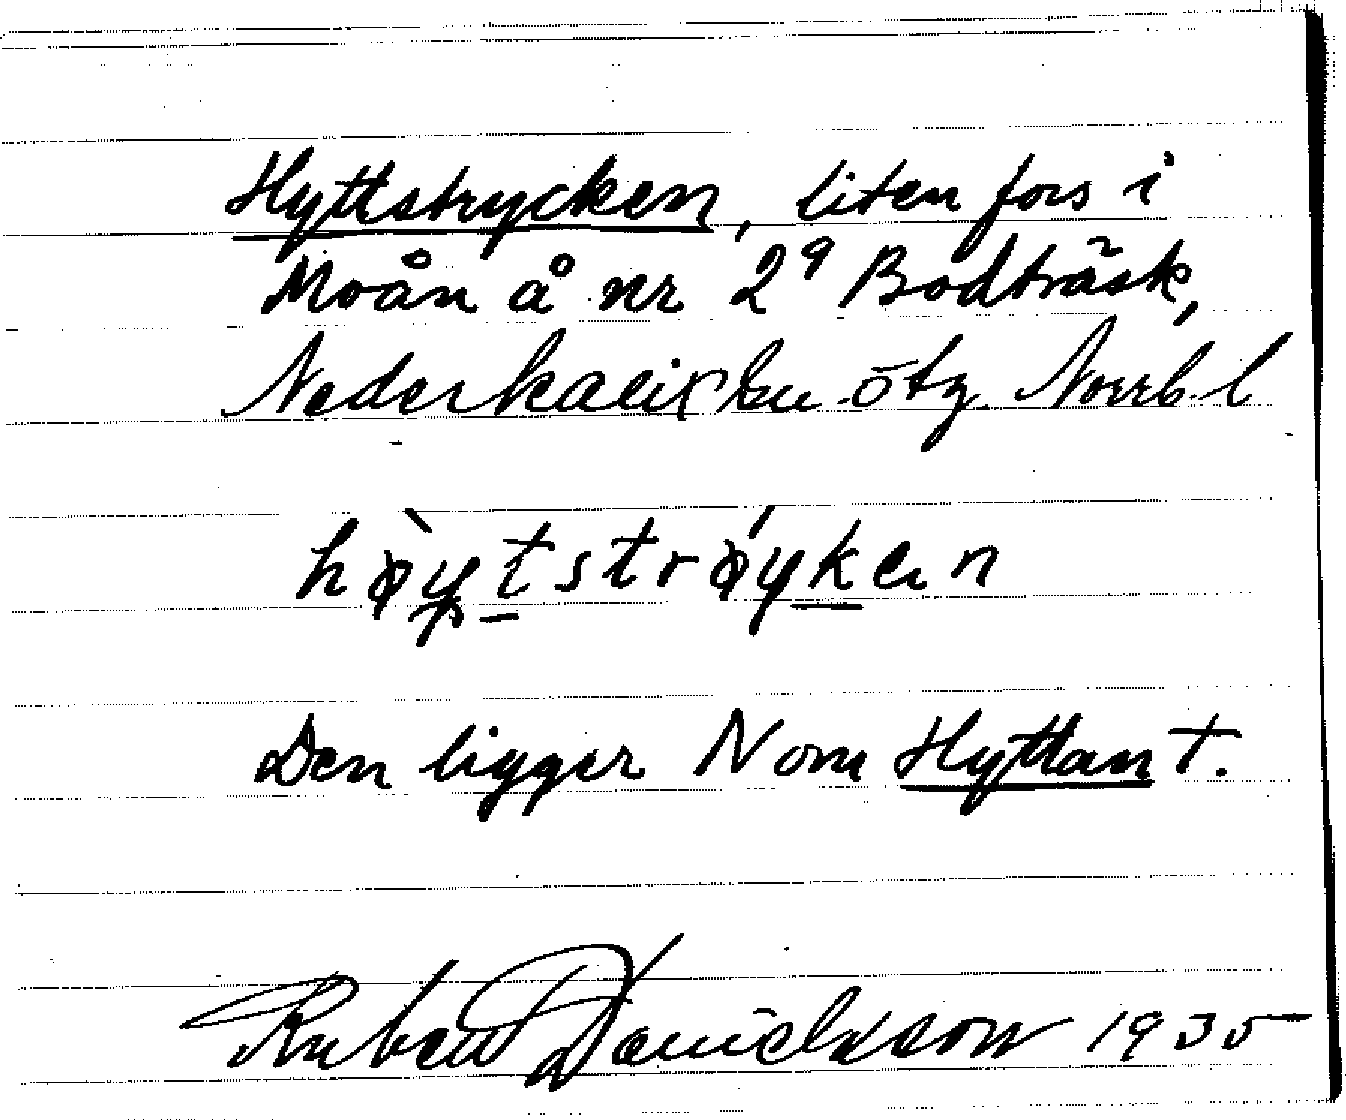 Hyttstrycken, liten fors i
Moån å nr 29 Bodträsk,
Nederkalix sn ötg. Norrb. l
høytstrøyken
Den ligger N om Hyttan T.
Ruben Danielsson 1935